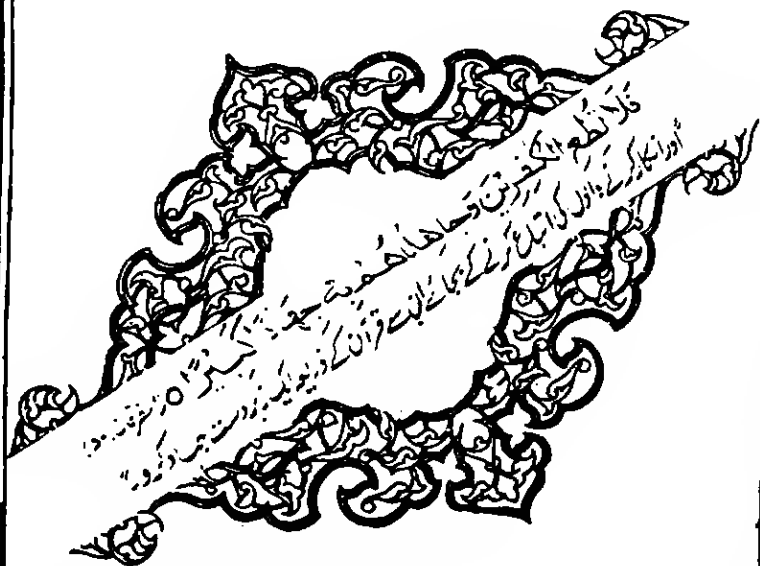 فَلَا تُطِعِ الْكٰفِرِیْنَ وَجَاهِدْهُمْ بِهٖ جِهَادًا كَبِیْرًا ۝ (الفرقان
"اور انکار کرنے والوں کی اتباع کرنے کے بجائے ان سے قرآن کے ذریعہ ایک زبردست جہاد کرو۔"